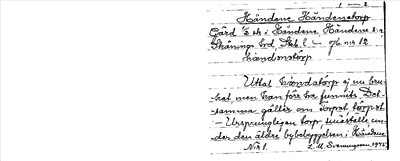 1 — 2
Händene Händenetorp
Gård ¼ mtl i Händene, Händene sn
Skånings hd, Skbl — 7/6 nr 12
hændonstorp
Uttal hændatorp ej nu bru-
kat, men kan förr ha funnits. Det-
samma gäller om Torpet tørpət
— Ursprungligen torp, nyställe un-
der den äldre bybebyggelsen i Händene
Nr 1. L. M. Svenungsson 1945